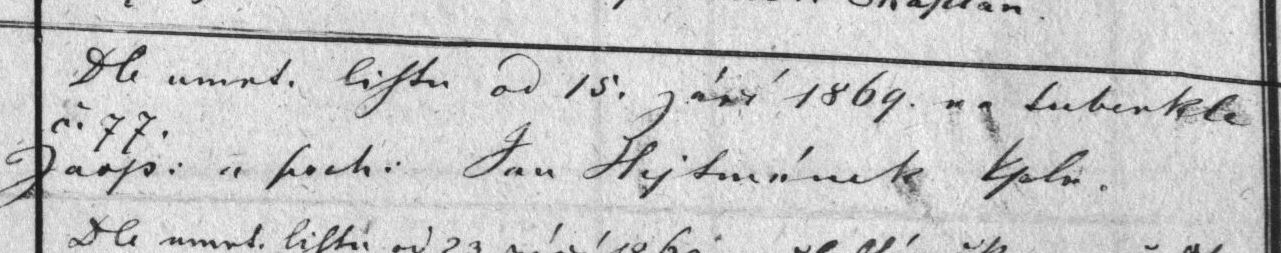 Kaplan.
Dle umrt. listu od 15. září 1869. na tuberkle
č. 77.
Zaop: a poch: Jan Hejtmánek kplr.
Dle umrt. listu od 23 září 1869